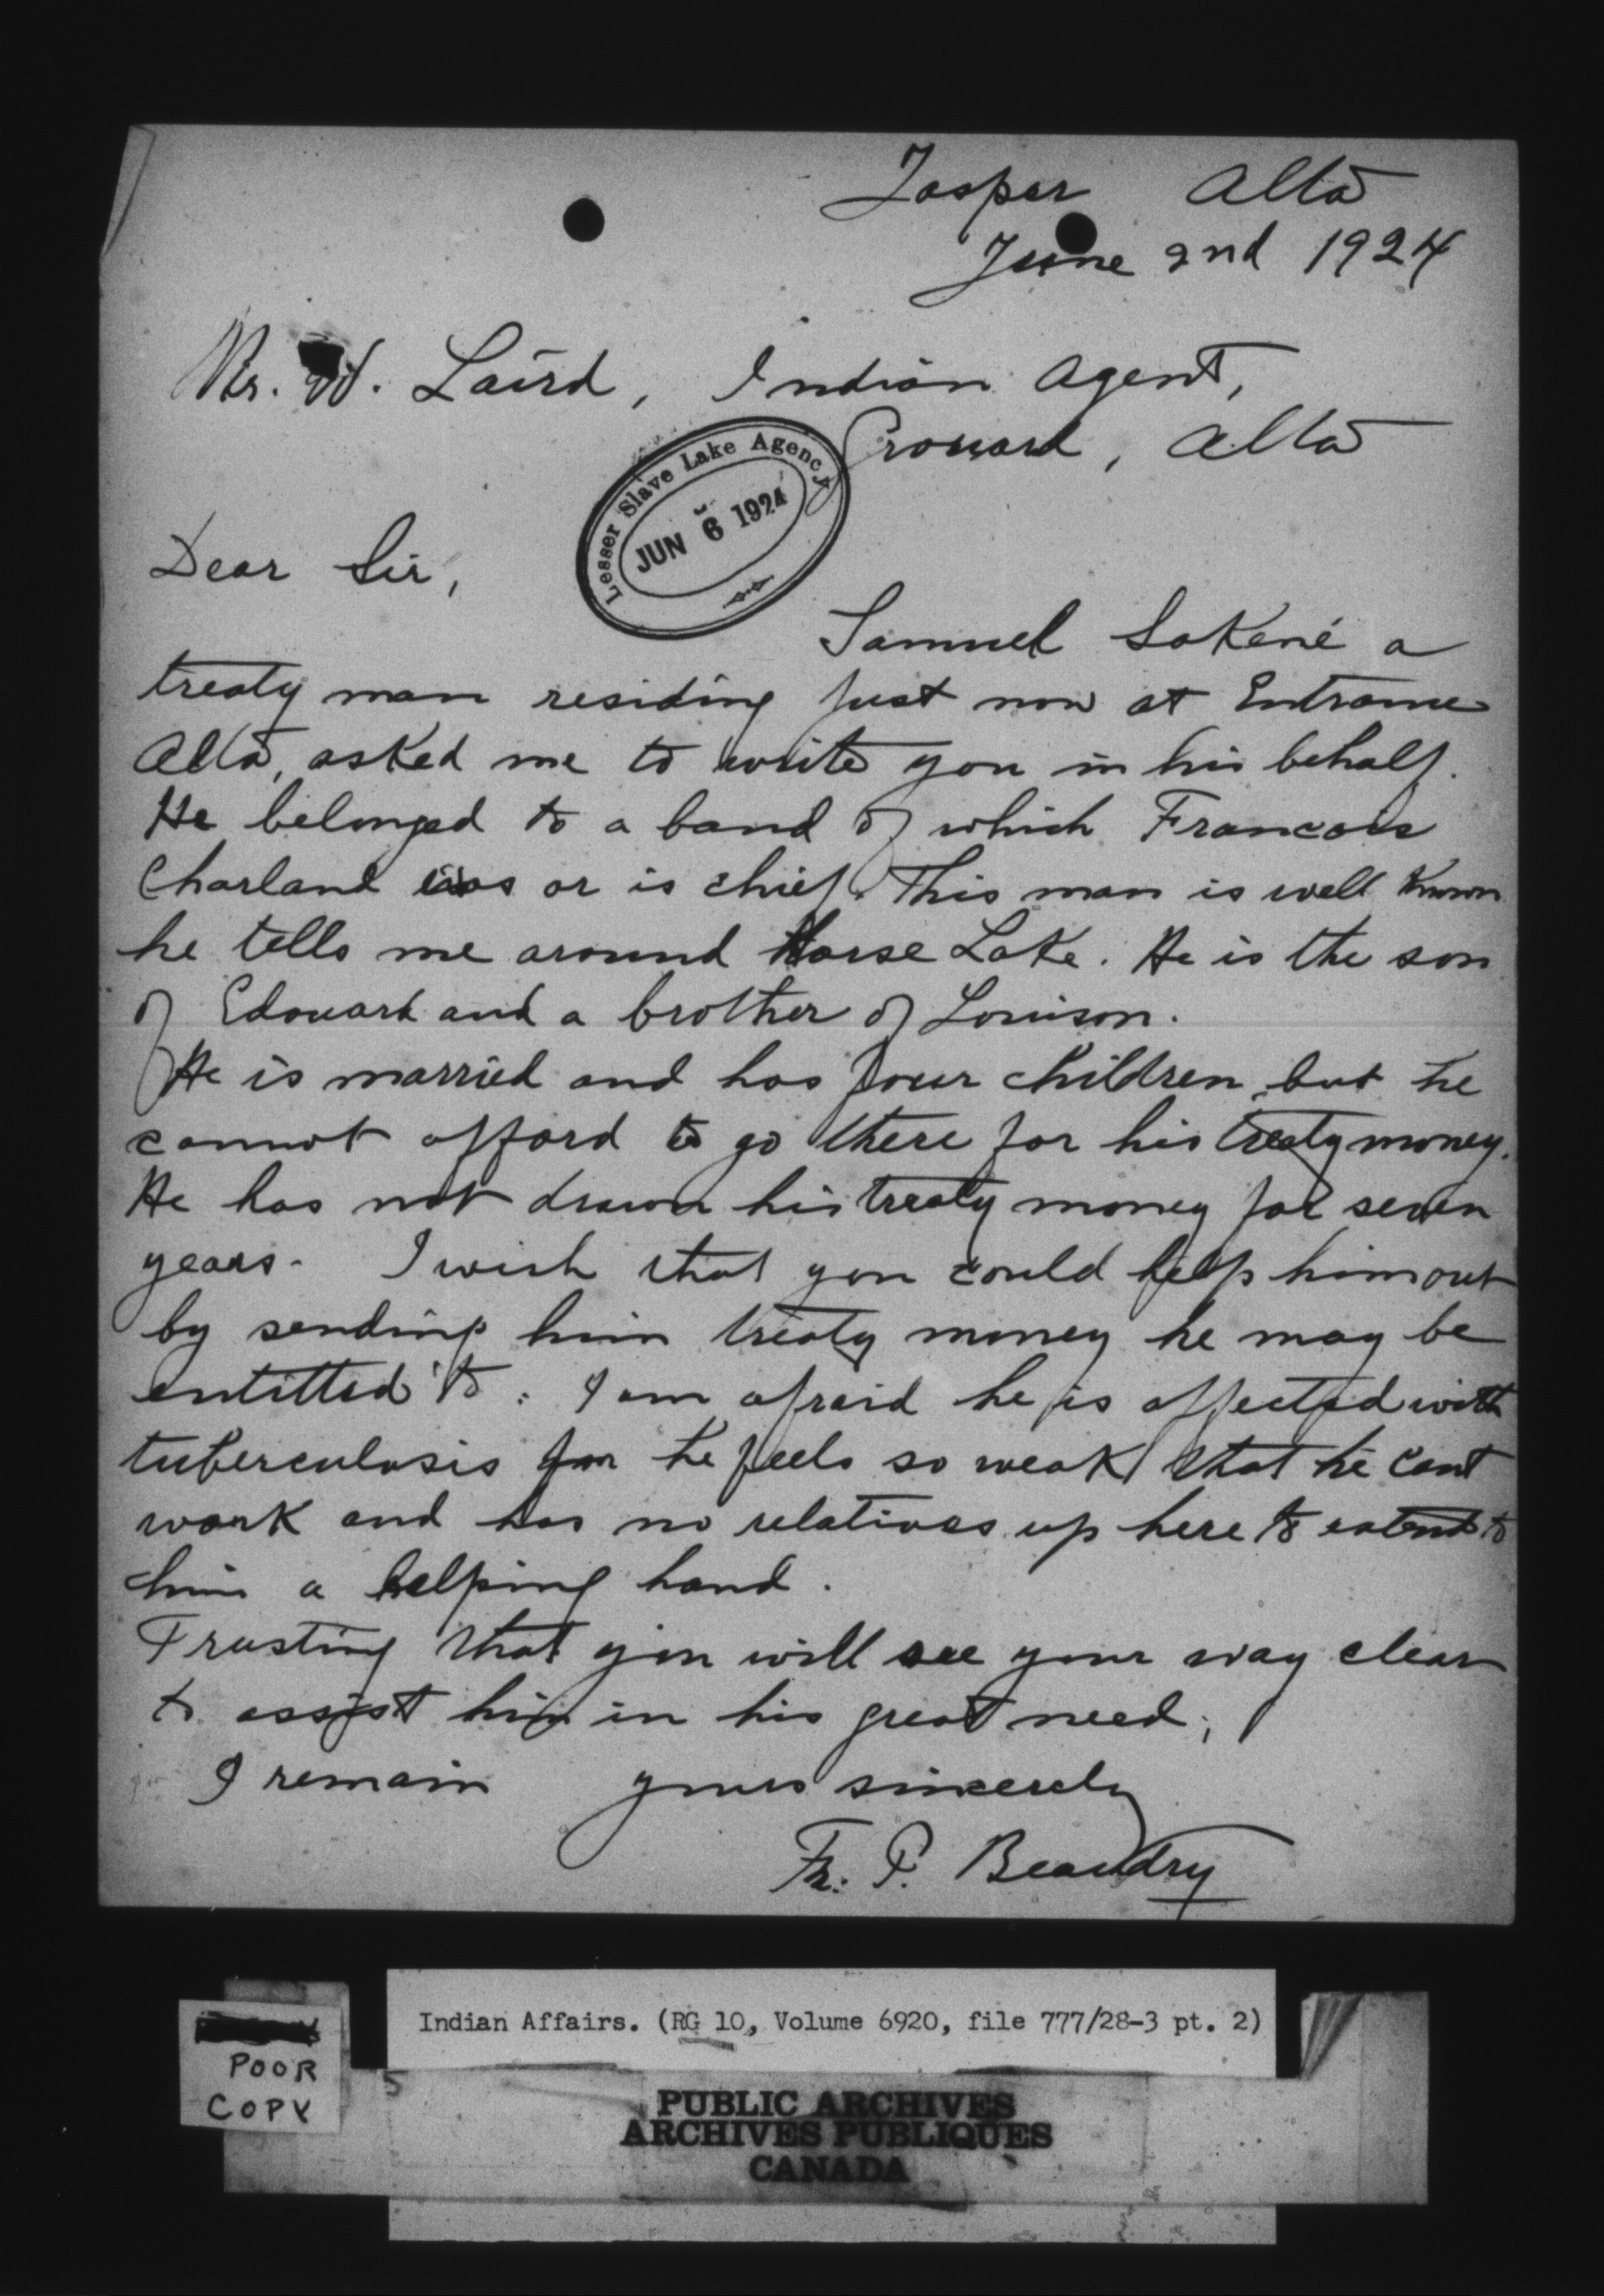 Jasper Alta
June 2nd 1924
Mr. W. Laird, Indian Agent,
Grouard, Alta
Lesser Slave Lake Agency
JUN 6 1924
Dear Sir,
Samuel Sakené a
treaty man residing just now at Entrance
Alta, asked me to write you in his behalf.
He belonged to a band of which Francois
Charland was or is chief. This man is well Known
he tells me around Horse Lake. He is the son
of Edouard and a brother of Louison.
He is married and has four children, but he
cannot afford to go there for his treaty money.
He has not drawn his treaty money for seven
years. I wish that you could help him out
by sending him treaty money he may be
entitted to: I am afraid he is affected with
tuberculosis for he feels so weak that he cant
work and has no relatives up here to extend to
him a helping hand.
Trusting that you will see your way clear
to assist him in his great need,
I remain yours sincerely
Fr. P. Beaudry
Indian Affairs. (RG 10, Volume 6920, file 777/28-3 pt. 2)
POOR
COPY
PUBLIC ARCHIVES
ARCHIVES PUBLIQUES
CANADA